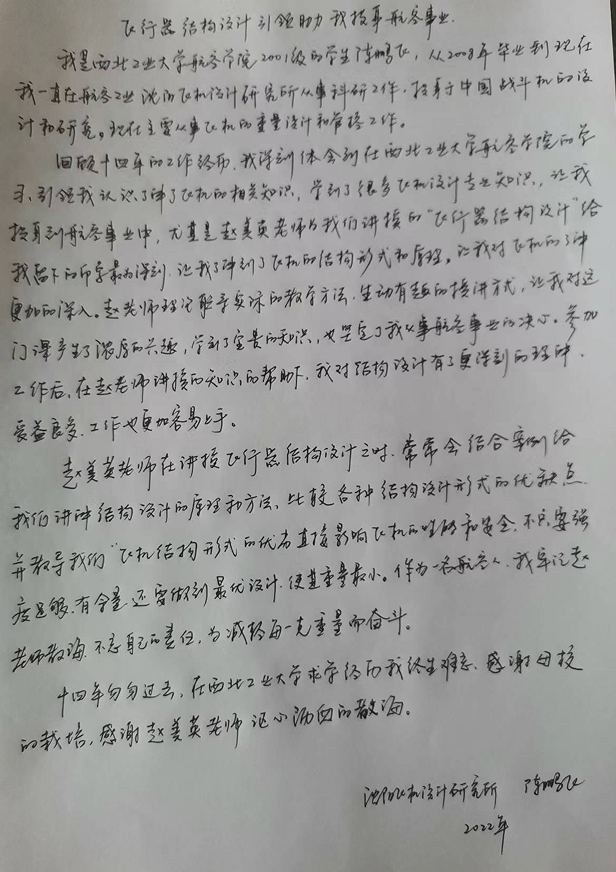 飞行器结构设计引领助力我投事航空事业
我是西北工业大学航空学院2001级的学生陈鹏飞，从2008年毕业到现在
我一直在航空工业沈阳飞机设计研究所从事科研工作，投身于中国战斗机的设
计和研究。现在主要从事飞机的重量设计和管控工作。
回顾十四年的工作经历，我深刻体会到在西北工业大学航空学院的学
习，引领我认识了解了飞机的相关知识，学到了很多飞机设计专业知识，让我
投身到航空事业中，尤其是赵美英老师为我们讲授的“飞行器结构设计”给
我留下的印象最为深刻，让我了解到了飞机的结构形式和原理。让我对飞机的了解
更加的深入。赵老师理论联系实际的教学方法，生动有趣的授讲方式，让我对这
门课产生了浓厚的兴趣，学到了宝贵的知识，也坚定了我从事航空事业的决心。参加
工作后，在赵老师讲授的知识的帮助下，我对结构设计有了更深刻的理解，
受益良多，工作也更加容易上手。
赵美英老师在讲授飞行器结构设计之时，常常会结合案例给
我们讲解结构设计的原理和方法，比较各种结构设计形式的优缺点
并教导我们“飞机结构形式的优劣直接影响飞机的性能和安全，不只要强
度足够，有余量，还要做到最优设计，使其重量最小。作为一名航空人，我牢记赵
老师教诲，不忘自己的责任，为减轻每一克重量而奋斗。
十四年匆匆过去，在西北工业大学求学经历我终生难忘，感谢母校
的栽培，感谢赵美英老师沁心沥血的教诲。
沈阳飞机设计研究所 陈鹏飞
2022年